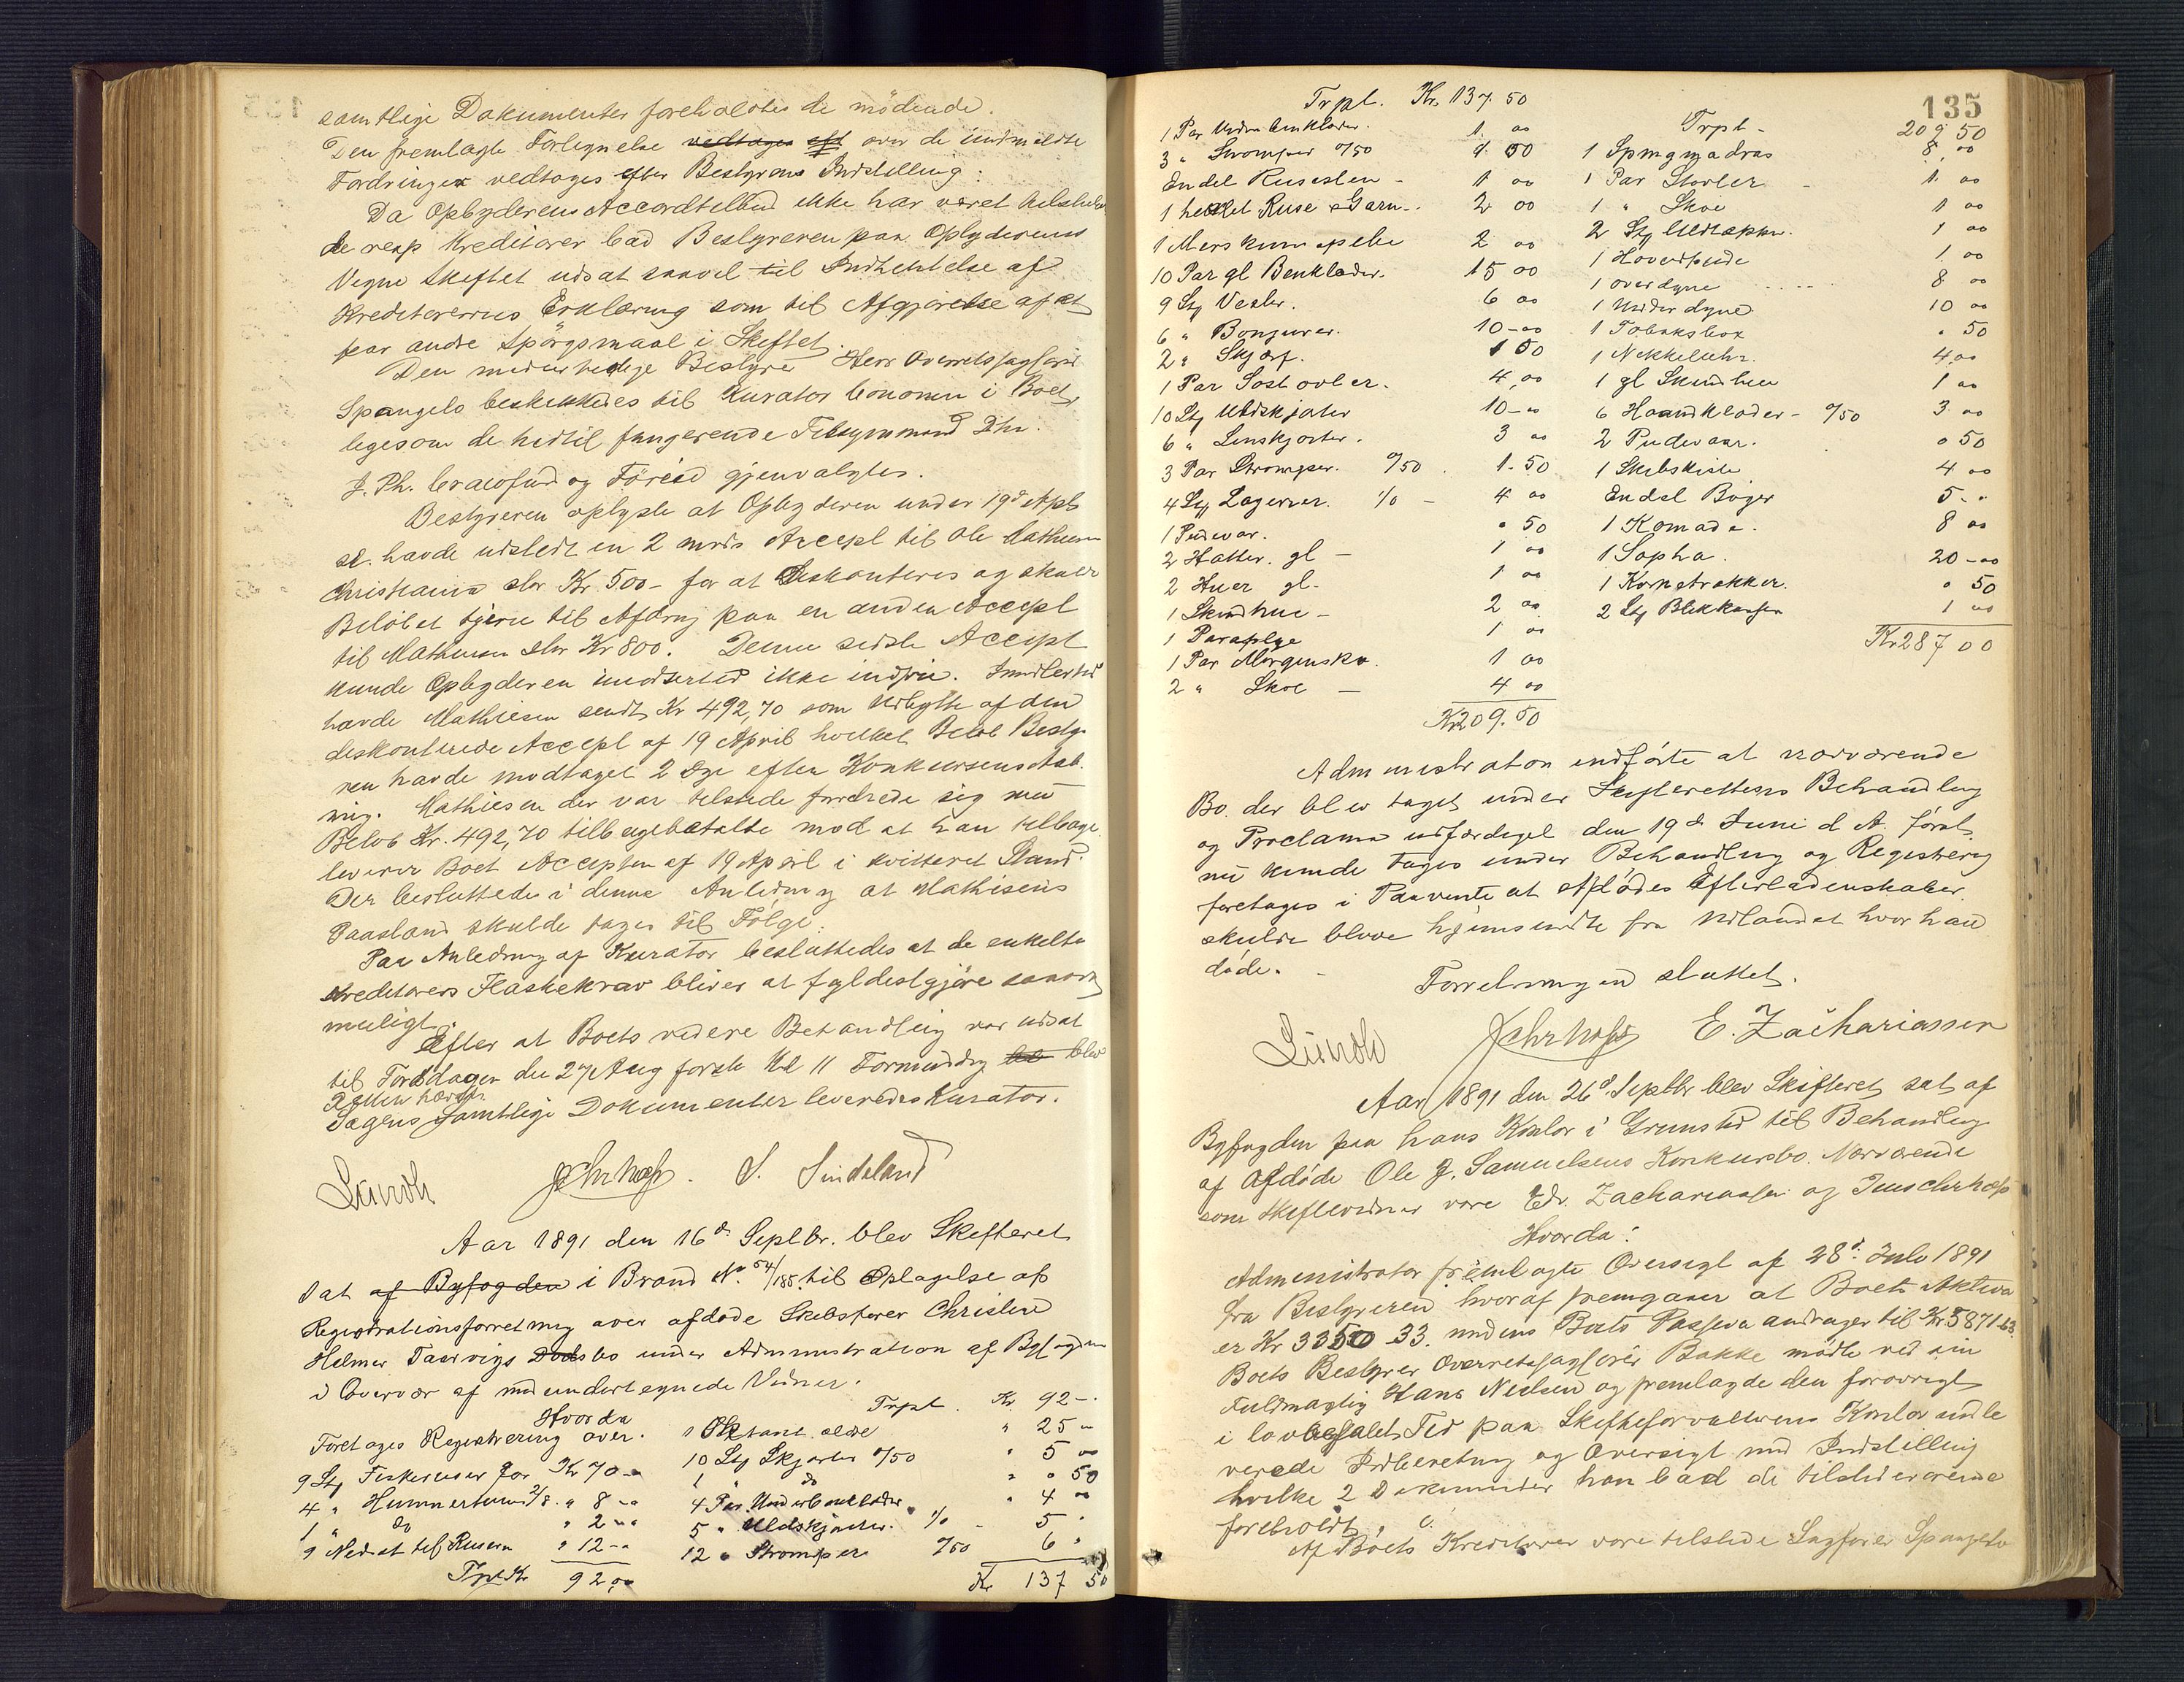 samtlige Dokumenter foreholdtes de mödende.
Den fremlagte Forlegnelse vedtages eft over de indmeldte
Fordringer vedtages efter Bestyrens Indstilling:
Da Opbyderens Accordtilbud ikke har været tilstillet
de resp Kreditorer bad Bestyreren paa Opbyderens
Vegne Skiftet udsat saavel til Indhentelse af
Kreditorernes Erklæring som til Afgjørelse af et
par andre Spörgsmaal i Skiftet.
Den midlertidige Bestyrer Herr Overretssagförer
Spangelo beskikkedes til Kurator bonorum i Boet,
ligesom de hidtil fungerende Tilsynsmænd Dhr.
J. Ph. Crawfurd og Föreid gjenvalgtes.
Bestyreren oplyste at Opbyderen under 19d Apl
sl. havde udstedt en 2 mrds Accept til Ole Mathiesen
Christiania stor Kr 500- for at diskonteres og skulde
Belöbet tjene til Afdrag paa en anden Accept
til Mathiesen stor Kr 800. Denne sidste Accept
kunde Opbyderen imidlertid ikke indfrie. Imidlertid
havde Mathiesen sendt Kr 492,70 som Udbytte af den
diskonterede Accept af 19 April hvilket Belöb Besty-
ren havde modtaget 2 Dge efter Konkursens Aab-
ning. Mathiesen der var tilstede fordrede sig nu
Belöb Kr. 492,70 tilbagebetalte mod at han tilbage-
leverer Boet Accepten af 19 April i kvitteret Stand.
Der besluttedes i denne Anledning at Mathisens
Paastand skulde tages til Fölge.
Paa Anledning af Kurator besluttedes at de enkelte
Kreditorers Flaskekrav bliver at fyldestgjöre saavidt
muligt.
Efter at Boets videre Behandling var udsat
til Torsdagen den 27 Aug förste Kl 11 Formiddag blev
Retten hævet.
Sagens samtlige Dokumenter leveredes Kurator.
Lund J Chr Hass. S. Sindeland
Aar 1891 den 16d Septbr. blev Skifteret
sat af Byfogden i Brand No. 54/185 til Optagelse af
Registrationsforretning over afdøde Skibsfører Christen
Helmer Taarvigs Dödsbo under Administration af Byfogden
i Overvær af medundertegnede Vidner.
Hvorda
Foretages Registrering over.
9 Stj Fiskeruser for Kr 70-"
4 " Hummerteiner 2/8. " 8 -"
1 " do " 2 -"
9 Nedsat til Rusern " 12 -"
Tspt Kr 92,00
Trpt. Kr. 92 -.
1 Oktant ældre " 25 "
10 Stj Skjorter a/50 " 5 00
1 " do " " 50
4 Par Underbenklæder " 4 "
5 " Uldskjorter. 1/0 - 5 "
12 " Strömper a/50 6 "
Kr 137 50
135
Trpt. Kr. 137.50
1 Par Underbenklæder. 1. 00
3 " Strømper a/50 1. 50
En del Ruseslen - 1 00
1 heklet Ruse & Garn-. 2 00
1 Merskumspibe 2 00
10 Par gl Benklæder. 15 00
9 Stj Vester. 6 00
6 " Bonjurer. 10-00
2 " Skjærf. 1 50
1 Par Søstovler. 4,00
10 Stj Uldskjorter 10-00
6 " Linskjorter. 3 00
3 Par Strømper. a/50 . 1-50
4 Stj Lagerner. 1/0 - 4 00
1 Pudevar. " 50
2 Hatter. gl - 1 00
2 Huer gl- 1 00
1 Skindhue - 2 00
1 Paraplye 1 00
1 Par Morgensko. 1 00
2 " Skoe - 4 00
Kr 209.50
Trpt - 209 50
1 Springmadras 8,00
1 Par Stovler - 1. 00
1 " Skoe 1 00
2 Stj Uldtæpper. 1 00
1 Hovedpude 1. 00
1 overdyne 8 00
1 Underdyne 10 00
1 Tobaksbox " 50
1 Nikkeluhr. 4,00
1 gl Skindhue 1 00
6 Haandklæder - a/50 3 00
2 Pudevaar. " 50
1 Skibskiste 4 00
En del Böger 5 - "
1 Komode. 8 00
1 Sopha. 20 -00
1 Korketrækker. " 50
2 Stj Blikkasser 1 00
Kr 287 00
Administrator indförte at nærværende
Bo der blev taget under Skifterettens Behandling
og Proclama udfærdiget den 19d Juni d A. först
nu kunde tages under Behandling og Registrering
foretages i Paavente at Afdödes Efterladenskaber
skulde bleve hjemsendte fra Udlandet hvor han
döde. -
Forretningen sluttet.
Lund J Chr Hass E. Zachariassen
Aar 1891 den 26d Septbr blev Skifteret sat af
Byfogden paa hans Kontor i Grimstad til Behandling
af Afdöde Ole J. Samuelsens Konkursbo. Nærværende
som Skiftevidner vare Edv. Zachariassen og Jens Chr Hass
Hvorda:
Administrator fremlagte Oversigt af 28d. Juli 1891
fra Bestyreren hvoraf fremgaaer at Boets Aktiva
er Kr 3350 33. medens Boets Passiva andrager til Kr 5871 63.
Boets Bestyrer Overretssagförer Bakke mödte ved sin
Fuldmægtig Hans Nielsen og fremlagde den forøvrigt
i lovbefalet Tid paa Skifteforvalterens Kontor indle
verede Indberetning og Oversigt med Indstilling
hvilke 2 Dokumenter han bad de tilstedeværende
foreholdt.
Af Boets Kreditorer vare tilstede Sagförer Spangelo